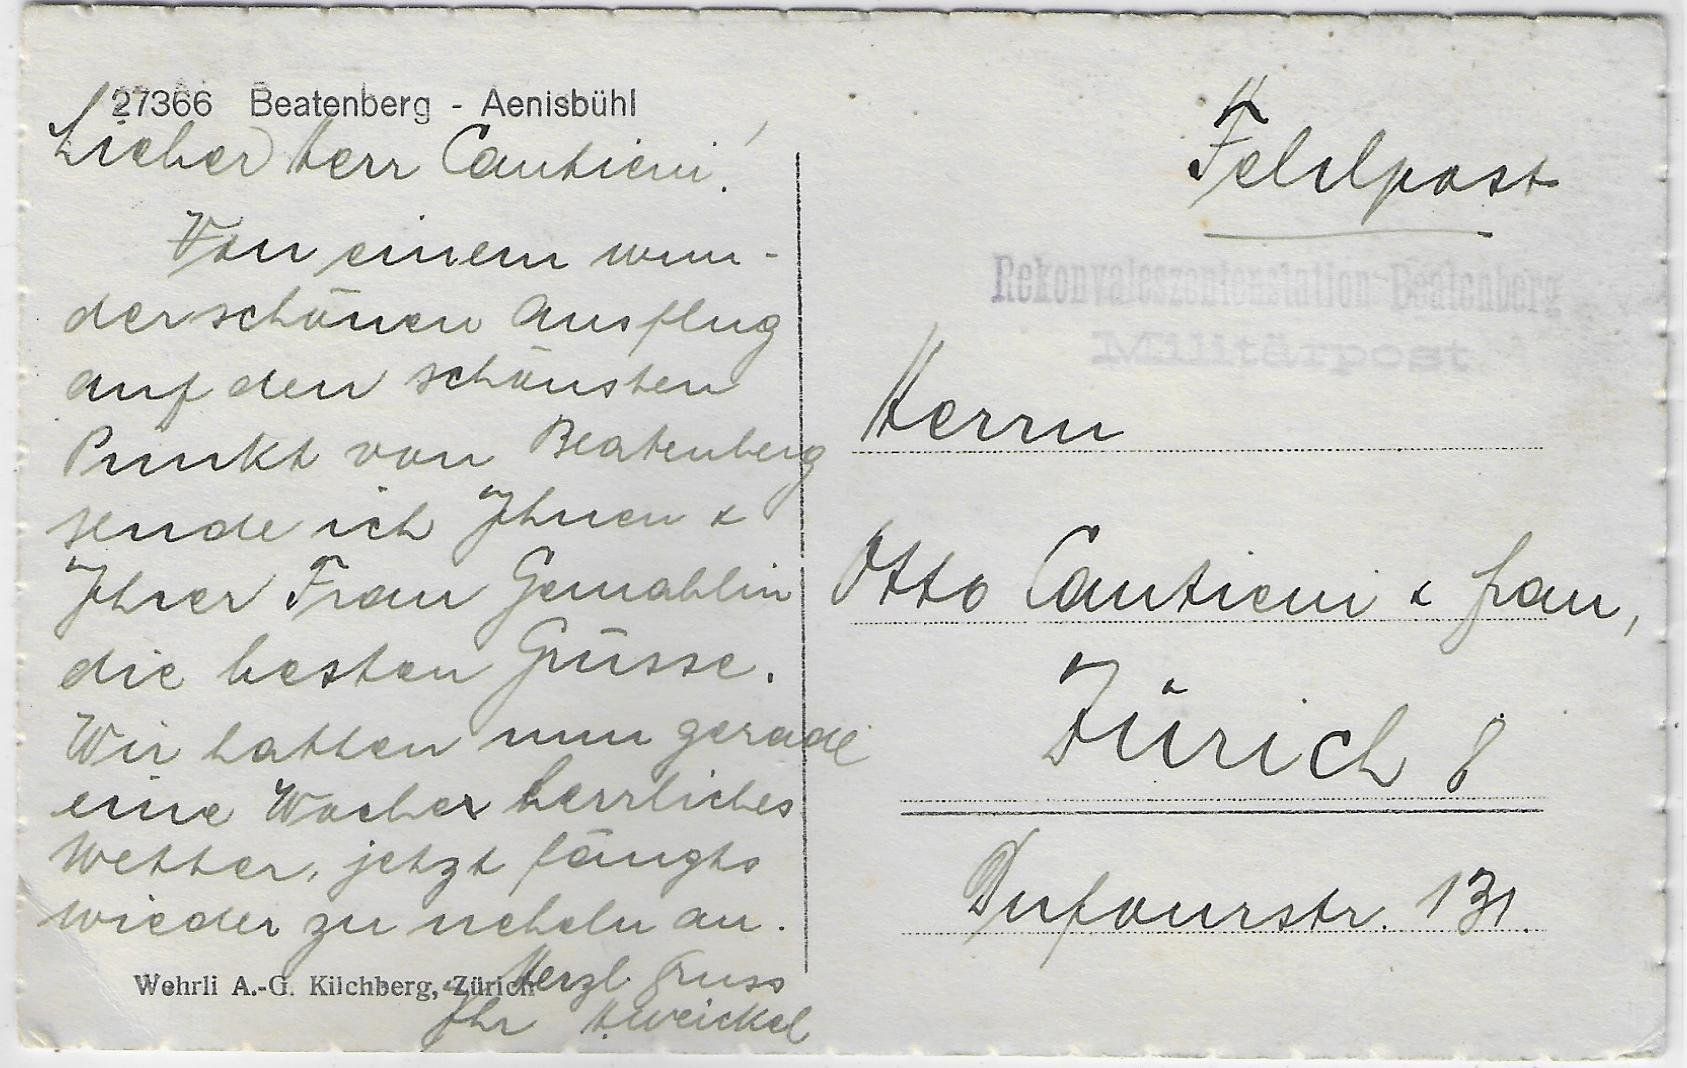 27366 Beatenberg - Aenisbühl
Lieber Herr Cantieni!
Von einem wun-
derschönen Ausflug
auf den schönsten
Punkt von Beatenberg
sende ich Ihnen &
Ihrer Frau Gemahlin
die besten Grüsse.
Wir hatten nun gerade
eine Woche herrliches
Wetter, jetzt fängts
wieder zu nebeln an.
Herzl. Gruss
Ihr H. Weickel
Wehrli A.-G. Kilchberg, Zürich
Feldpost
Rekonvaleszentenstation Beatenberg
Militärpost
Herrn
Otto Cantieni & Frau,
Zürich 8
Dufourstr. 131.